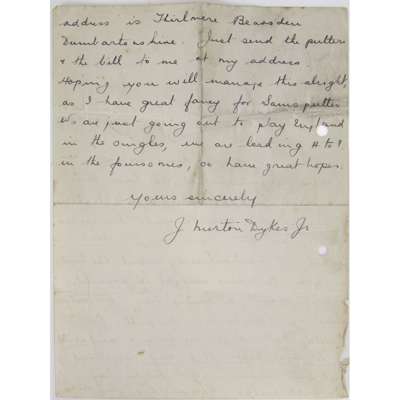 address is Thirlmere Bearsden
Dumbartonshire. Just send the putters
& the bill to me at my address.
Hoping you will manage this alright,
as I have great fancy for Sams putter
We are just going out to play England
in the singles, we are leading 4 to
in the foursomes, so have great hopes.
Yours sincerely
J Murton Dykes Jr